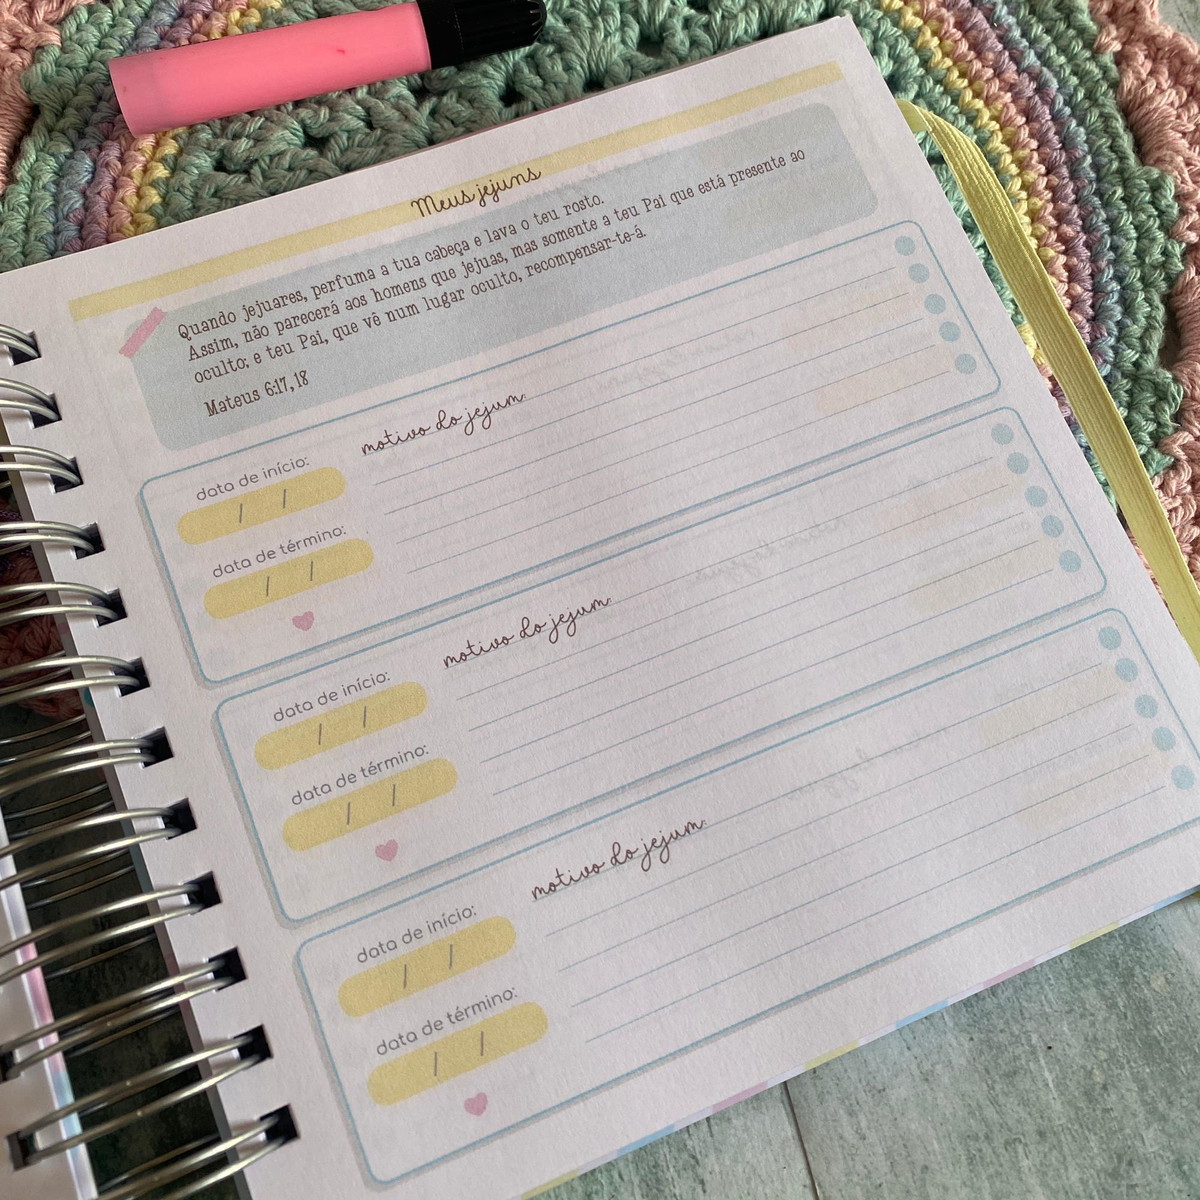 Meus jejuns
Quando jejuares, perfuma a tua cabeça e lava o teu rosto.
Assim, não parecerá aos homens que jejuas, mas somente a teu Pai que está presente ao
oculto; e teu Pai, que vê num lugar oculto, recompensar-te-á.
Mateus 6:17, 18
motivo do jejum:
data de início:
/ /
data de término:
/ /
motivo do jejum:
data de início:
/ /
data de término:
/ /
motivo do jejum:
data de início:
/ /
data de término:
/ /